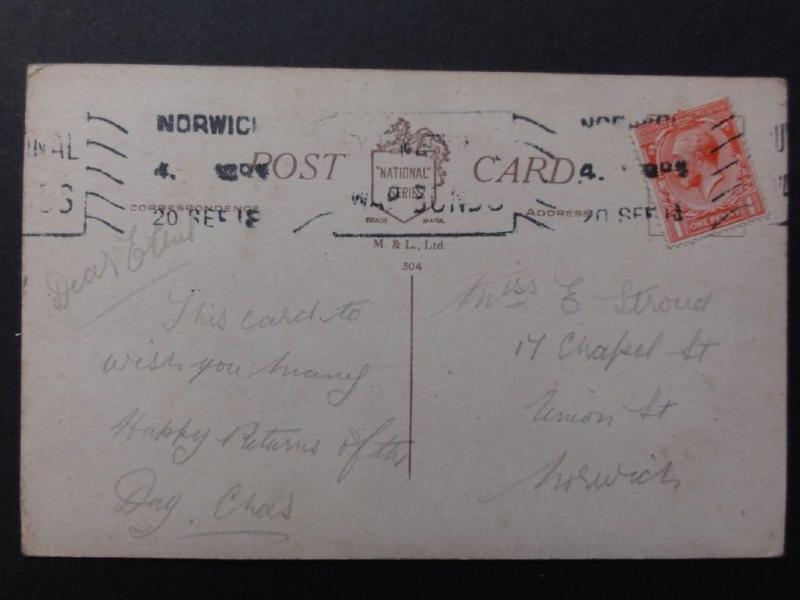 NORWICH
4.
20 SEP 18
NAL
WAR BONDS
4.
20 SEP 18
POST CARD
"NATIONAL"
SERIES
TRADE MARK.
CORRESPONDENCE
ADDRESS
M. & L., Ltd
304
ONE PENNY
Dear Ethel
This card to
wish you many
Happy Returns of the
Day. Chas
Miss E Stroud
17 Chapel St
Union St
Norwich